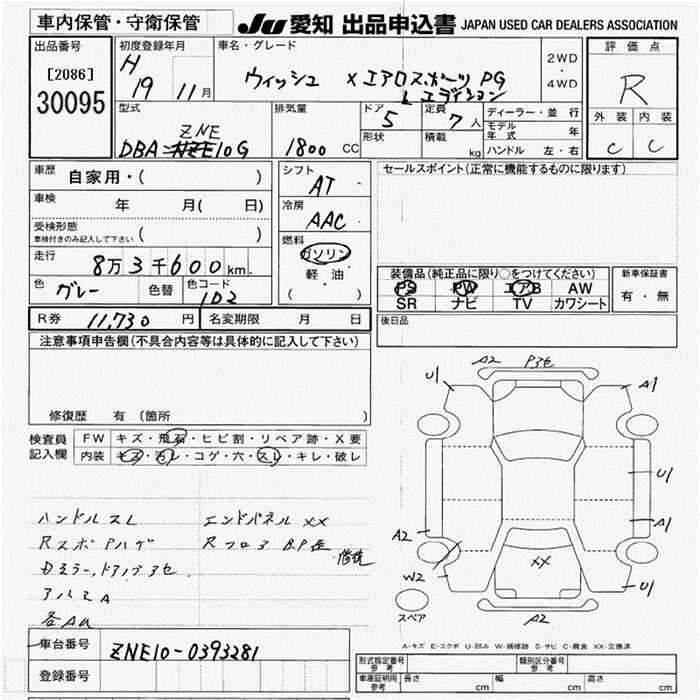 車内保管・守衛保管
JU 愛知 出品申込書 JAPAN USED CAR DEALERS ASSOCIATION
出品番号
[2086]
30095
初度登録年月
H 19 11月
車名・グレード
ウィッシュ X エアロスポーツ PG
L エディション
2WD
・
4WD
評価点
R
外装 内装
C C
型式
ZNE
DBA 10G
排気量
1800 CC
ドア 5
形状
定員 7人
積載 kg
ディーラー・並行
モデル年式 年
ハンドル 左・右
車歴 自家用・( )
車検 年 月( 日)
受検形態
車検付きのみ記入して下さい ( )
走行 8万3千600 km
色 グレー 色替 色コード 1D2
シフト
AT
冷房
AAC
燃料
ガソリン
軽・油
( )
セールスポイント(正常に機能するものに限ります)
装備品(純正品に限り○をつけてください)
PS PW エアB AW
SR ナビ TV カワシート
新車保証書
有・無
R券 11,730 円 名変期限 月 日
後日品
注意事項申告欄(不具合内容等は具体的に記入して下さい)
修復歴 有 (箇所 )
検査員 FW キズ・飛石・ヒビ割・リペア跡・X要
記入欄 内装 キズ・汚レ・コゲ・穴・スレ・キレ・破レ
ハンドルスレ エンドパネル XX
RスポPハゲ Rフロア B.P歪 修復
D.ミラー,ドアノブ ヨセ
アルミA
各Aa
A2 Pヨセ
U1 A1
U1
A1
A2
W2 XX U1
A2
スペア
A-キズ E-エクボ U-凹み W-補修跡 S-サビ C-腐食 XX-交換済
車台番号 ZNE10-0393281
登録番号
型式指定番号 参考 類別区分番号 参考
車庫証明用 参考 長さ cm 幅 cm 高さ cm